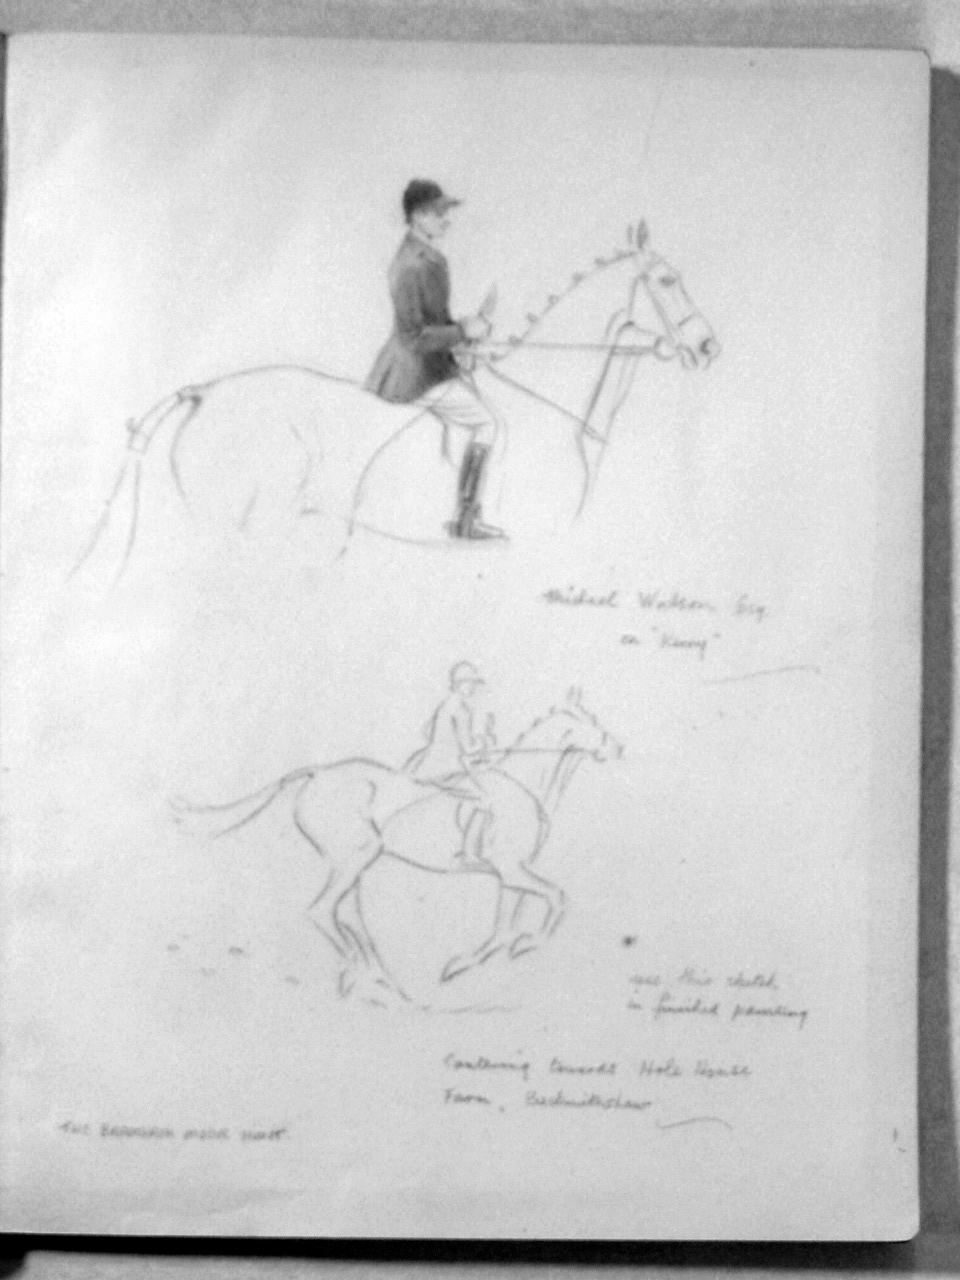 Michael Watson Esq.
on "Kerry"
use this sketch
in finished painting
Cantering towards Hole House
Farm, Beckwithshaw
THE BRAMHAM MOOR HUNT.